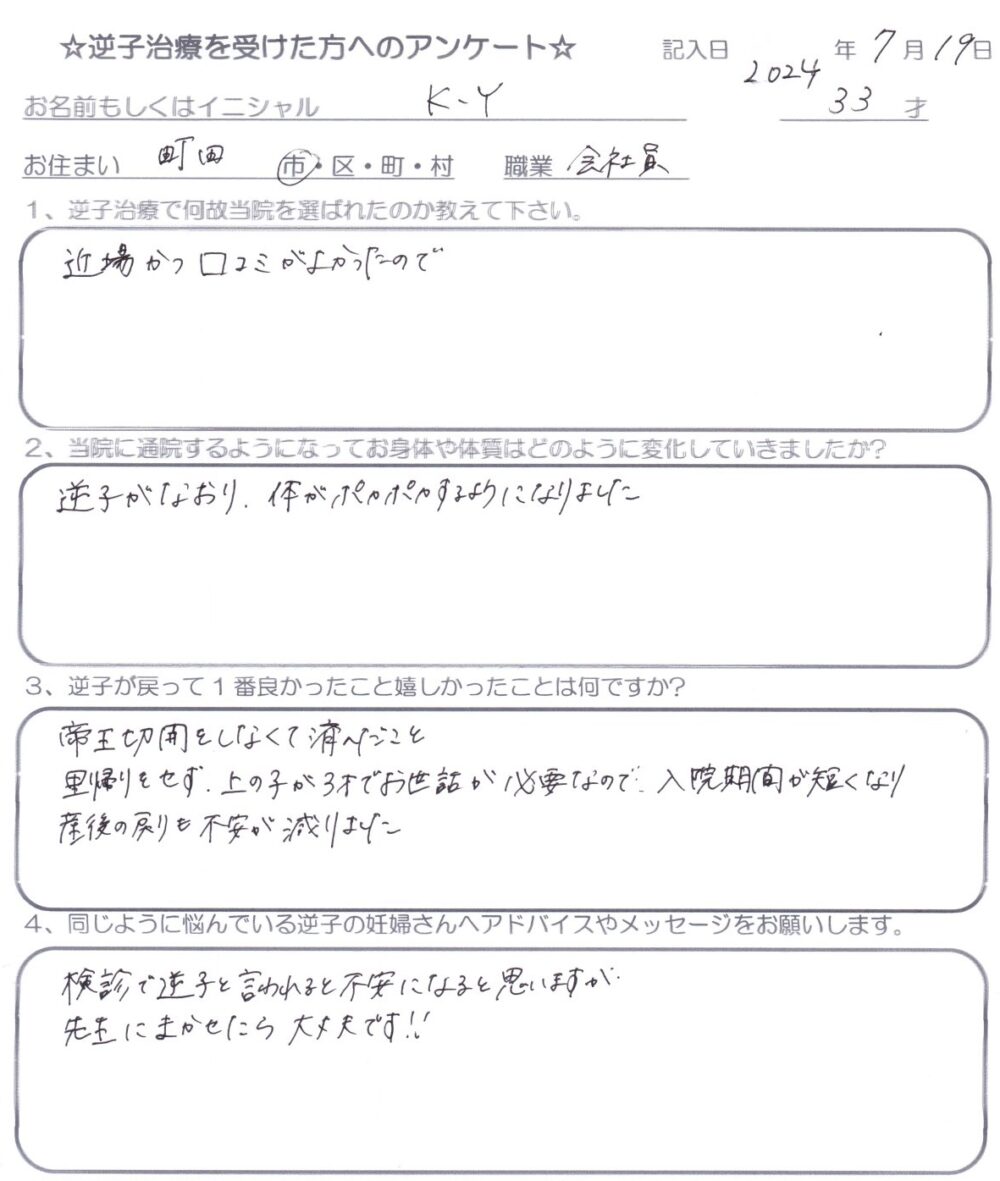 ☆逆子治療を受けた方へのアンケート☆ 記入日 2024 年 7 月 19 日
お名前もしくはイニシャル K-Y 33 才
お住まい 町田 市・区・町・村 職業 会社員
1、逆子治療で何故当院を選ばれたのか教えて下さい。
近場かつ口コミがよかったので
2、当院に通院するようになってお身体や体質はどのように変化していきましたか?
逆子がなおり、体がポカポカするようになりました
3、逆子が戻って1番良かったこと嬉しかったことは何ですか?
帝王切開をしなくて済んだこと
里帰りをせず、上の子が3才でお世話が必要なので、入院期間が短くなり
産後の戻りも不安が減りました
4、同じように悩んでいる逆子の妊婦さんへアドバイスやメッセージをお願いします。
検診で逆子と言われると不安になると思いますが
先生にまかせたら大丈夫です!!